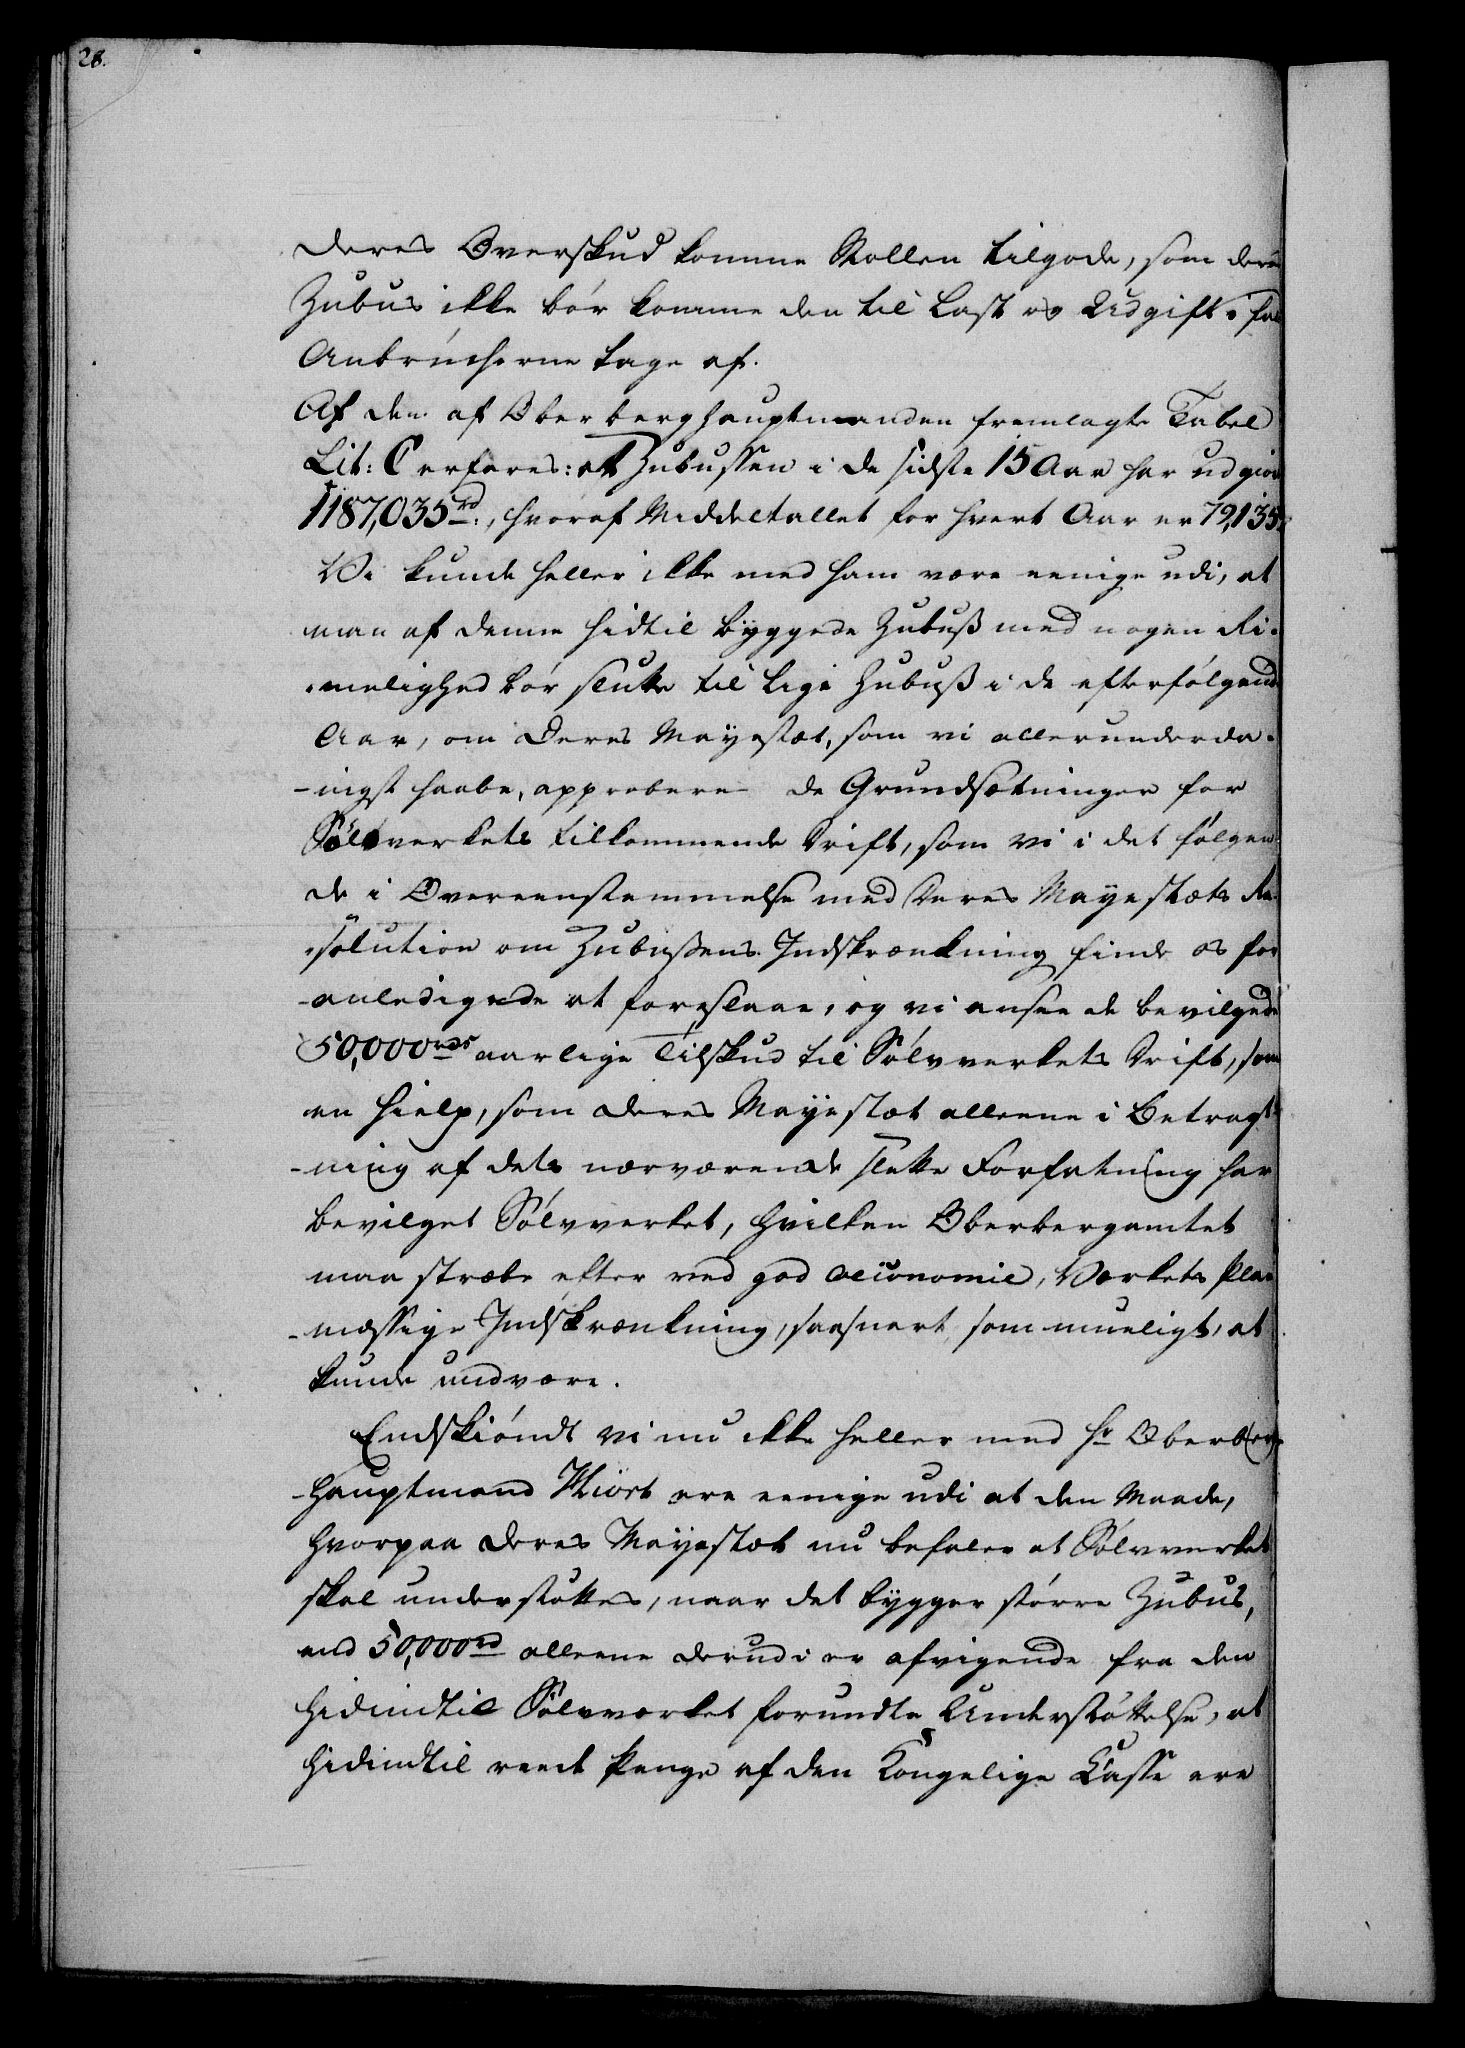 28.
deres Overskud komme Stollen tilgode, som deres
Zubus ikke bör komme den til Last og Udgift i fal
Anbrücherne tage af.
Af den af Oberberghauptmanden fremlagte Tabel
Lit: C erfares: at Zubussen i de sidste 15 Aar har udgiort
1187,035 rd., hvoraf Middeltallet for hvert Aar er 79,135
Vi kunde heller ikke med ham være eenige udi, at
man af denne hidtil byggede Zubuß med nogen Ri-
-melighed bör slutte til lige Zubuß i de efterfölgende
Aar, om Deres Mayestæt, som vi allerunderda-
-nigst haabe, approbere de Grundsætninger for
Sölvverkets tilkommende Drift, som vi i det fölgen-
de i Overeensstemmelse med Deres Mayestæts Re-
-solution om Zubussens Indskrænkning finde os for-
-anledigede at foreslaae, og vi ansee de bevilgede
50,000 rdr aarlige Tilskud til Sölvverkets Drift, som
en Hielp, som Deres Mayestæt alleene i Betragt-
-ning af dets nærværende slette Forfatning har
bevilget Sölvverket, hvilken Oberbergamtet
maa stræbe efter ved god oeconomie, Værkets Plan-
-mæssige Indskrænkning, saasnart som mueligt, at
kunde undvære.
Endskiöndt vi nu ikke heller med Hr Oberberg-
-hauptmand Hiort ere eenige udi at den Maade,
hvorpaa Deres Mayestæt nu befaler at Sölvverket
skal understöttes, naar det bygger större Zubus,
end 50,000 rd alleene derudi er afvigende fra den
hidindtil Sölvværket forundte Understöttelse, at
hidindtil reede Penge af den Kongelige Casse ere